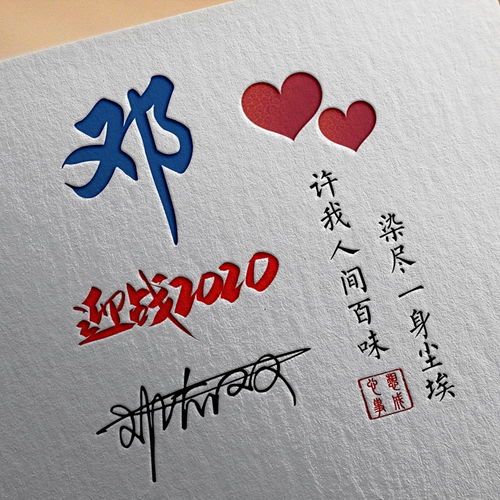 邓
迎战2020
许我人间百味
染尽一身尘埃
心想
事成